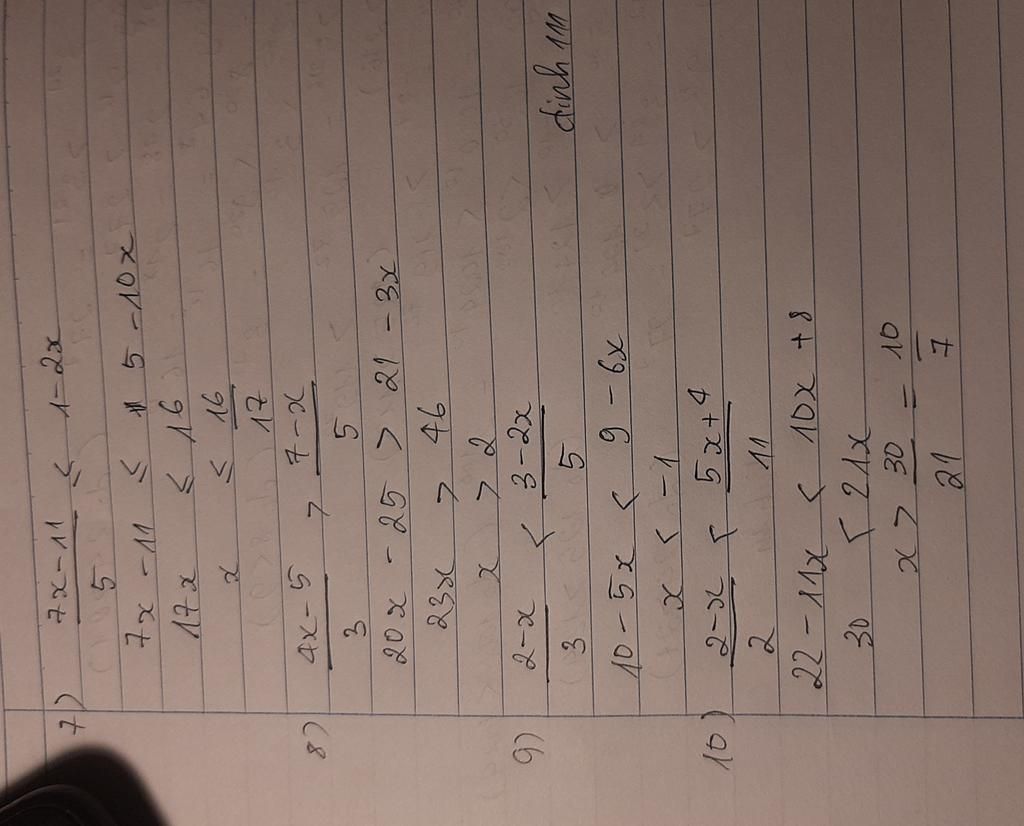 7) (7x-11)/5 ≤ 1-2x
7x-11 ≤ 5-10x
17x ≤ 16
x ≤ 16/17
8) (4x-5)/3 > (7-x)/5
20x - 25 > 21 - 3x
23x > 46
x > 2
9) (2-x)/3 < (3-2x)/5
10-5x < 9-6x
x < -1
10) (2-x)/2 < (5x+4)/11
22-11x < 10x+8
30 < 21x
x > 30/21 = 10/7